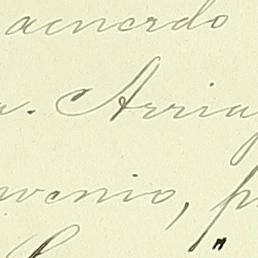 acuerdo
a. Arria
venio, p